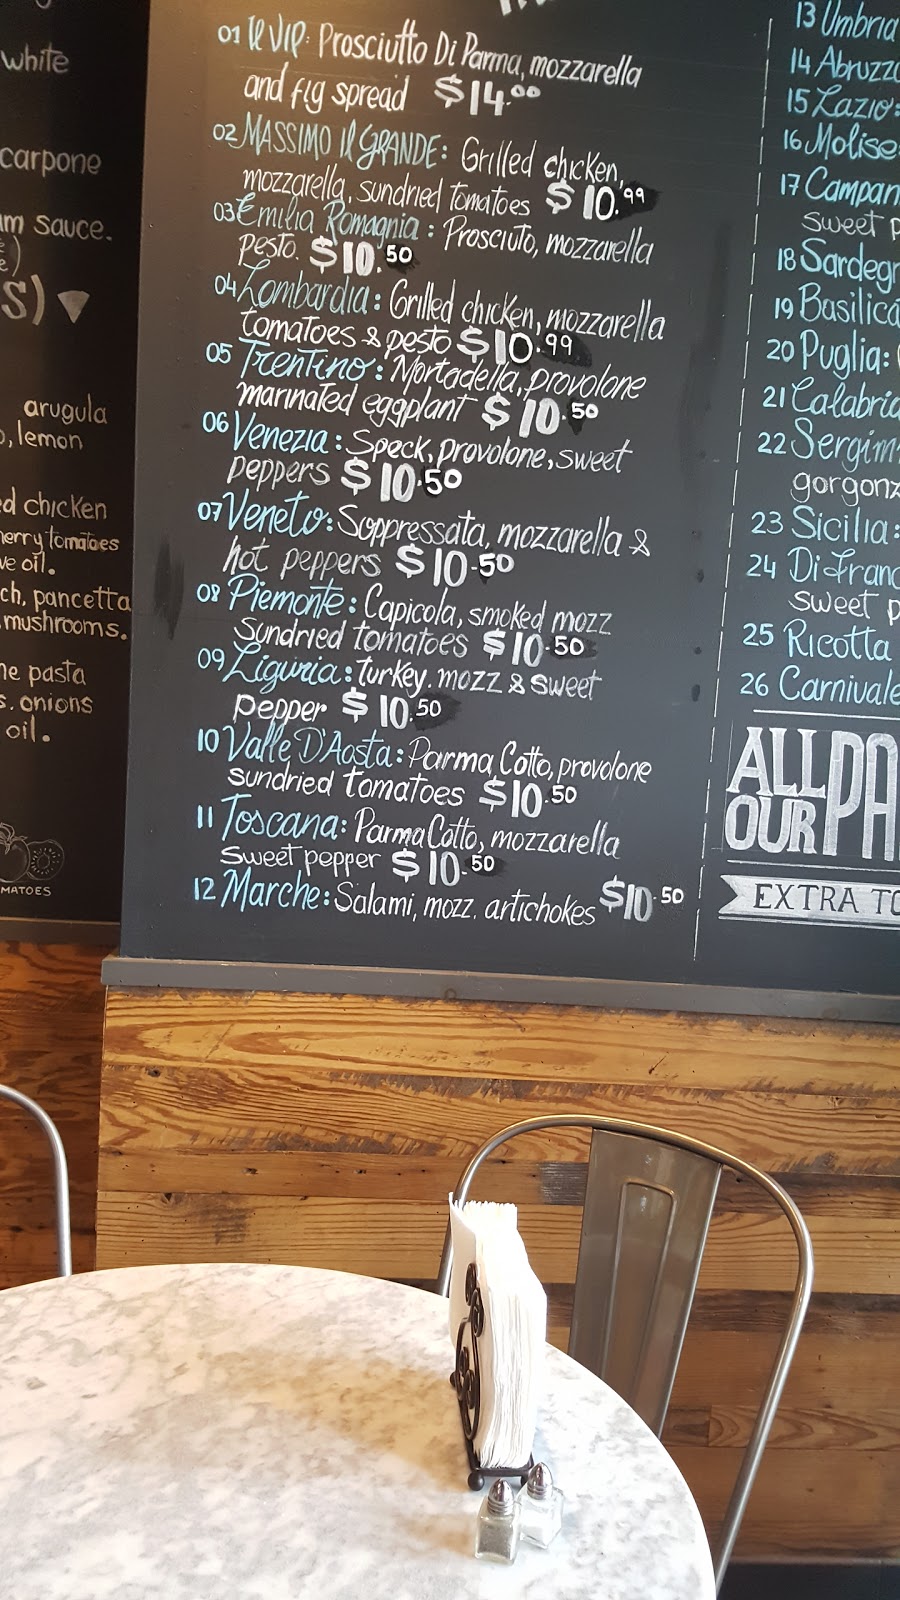 white
carpone
am sauce.
S)
arugula
, lemon
ed chicken
herry tomatoes
ve oil.
ch, pancetta
mushrooms.
ne pasta
s. onions
oil.
MATOES
01 Il VIP: Prosciutto Di Parma, mozzarella
and fig spread $14.00
02 MASSIMO Il GRANDE: Grilled chicken,
mozzarella, sundried tomatoes $10.99
03 Emilia Romagnia: Prosciuto, mozzarella
pesto. $10.50
04 Lombardia: Grilled chicken, mozzarella
tomatoes & pesto $10.99
05 Trentino: Mortadella, provolone
marinated eggplant $10.50
06 Venezia: Speck, provolone, sweet
peppers $10.50
07 Veneto: Soppressata, mozzarella &
hot peppers $10.50
08 Piemonte: Capicola, smoked mozz
Sundried tomatoes $10.50
09 Liguria: turkey. mozz & sweet
pepper $10.50
10 Valle D'Aosta: Parma Cotto, provolone
sundried tomatoes $10.50
11 Toscana: Parma Cotto, mozzarella
Sweet pepper $10.50
12 Marche: Salami, mozz. artichokes $10.50
13 Umbria
14 Abruzzo
15 Lazio:
16 Molise
17 Campan
sweet p
18 Sardegn
19 Basilica
20 Puglia:
21 Calabria
22 Sergim
gorgonz
23 Sicilia:
24 Di Franc
sweet p
25 Ricotta
26 Carnivale
ALL
OUR PA
EXTRA TO